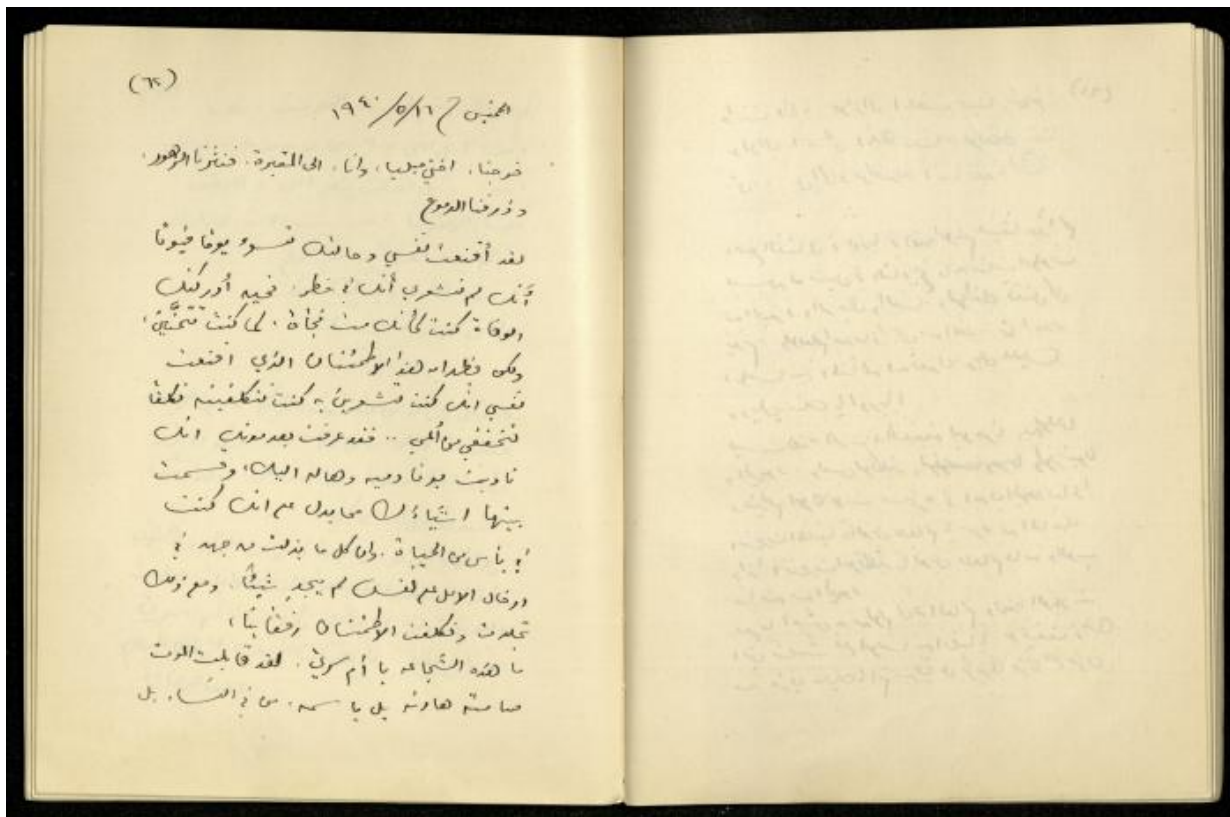 (٦٢)
الخميس ١٩٤٠/٥/١٦
خرجنا، اختي ميليا، وانا، الى المقبرة. فنثرنا الزهور.
وذرفنا الدموع
لقد أقنعت نفسي وحالتك تسوء يوماً فيوماً
أنك لم تشعري أنك في خطر. فحين أدركتك
الوفاة كنت كأنك مت فجأة. كما كنت تتمنين.
ولكن يظهر ان هذا الاطمئنان الذي اقنعت
نفسي انك كنت تشعرين به كنت تتكلفينه تكلفاً
لتخففي من ألمي .. فقد عرفت بعد موتك انك
ناديت يوماً دميه وهاله اليك، وقسمت
بينهما اشياءك مما يدل على انك كنت
في يأس من الحياة. وان كل ما بذلت من جهد في
ادخال الامل على نفسك لم يجدِ شيئاً. ومع ذلك
تجلدت وتكلفت الاطمئنان رفقاً بنا،
ما هذه الشجاعه يا أم سري. لقد قابلت الموت
صامته هادئه بل باسمه. من في النساء، بل